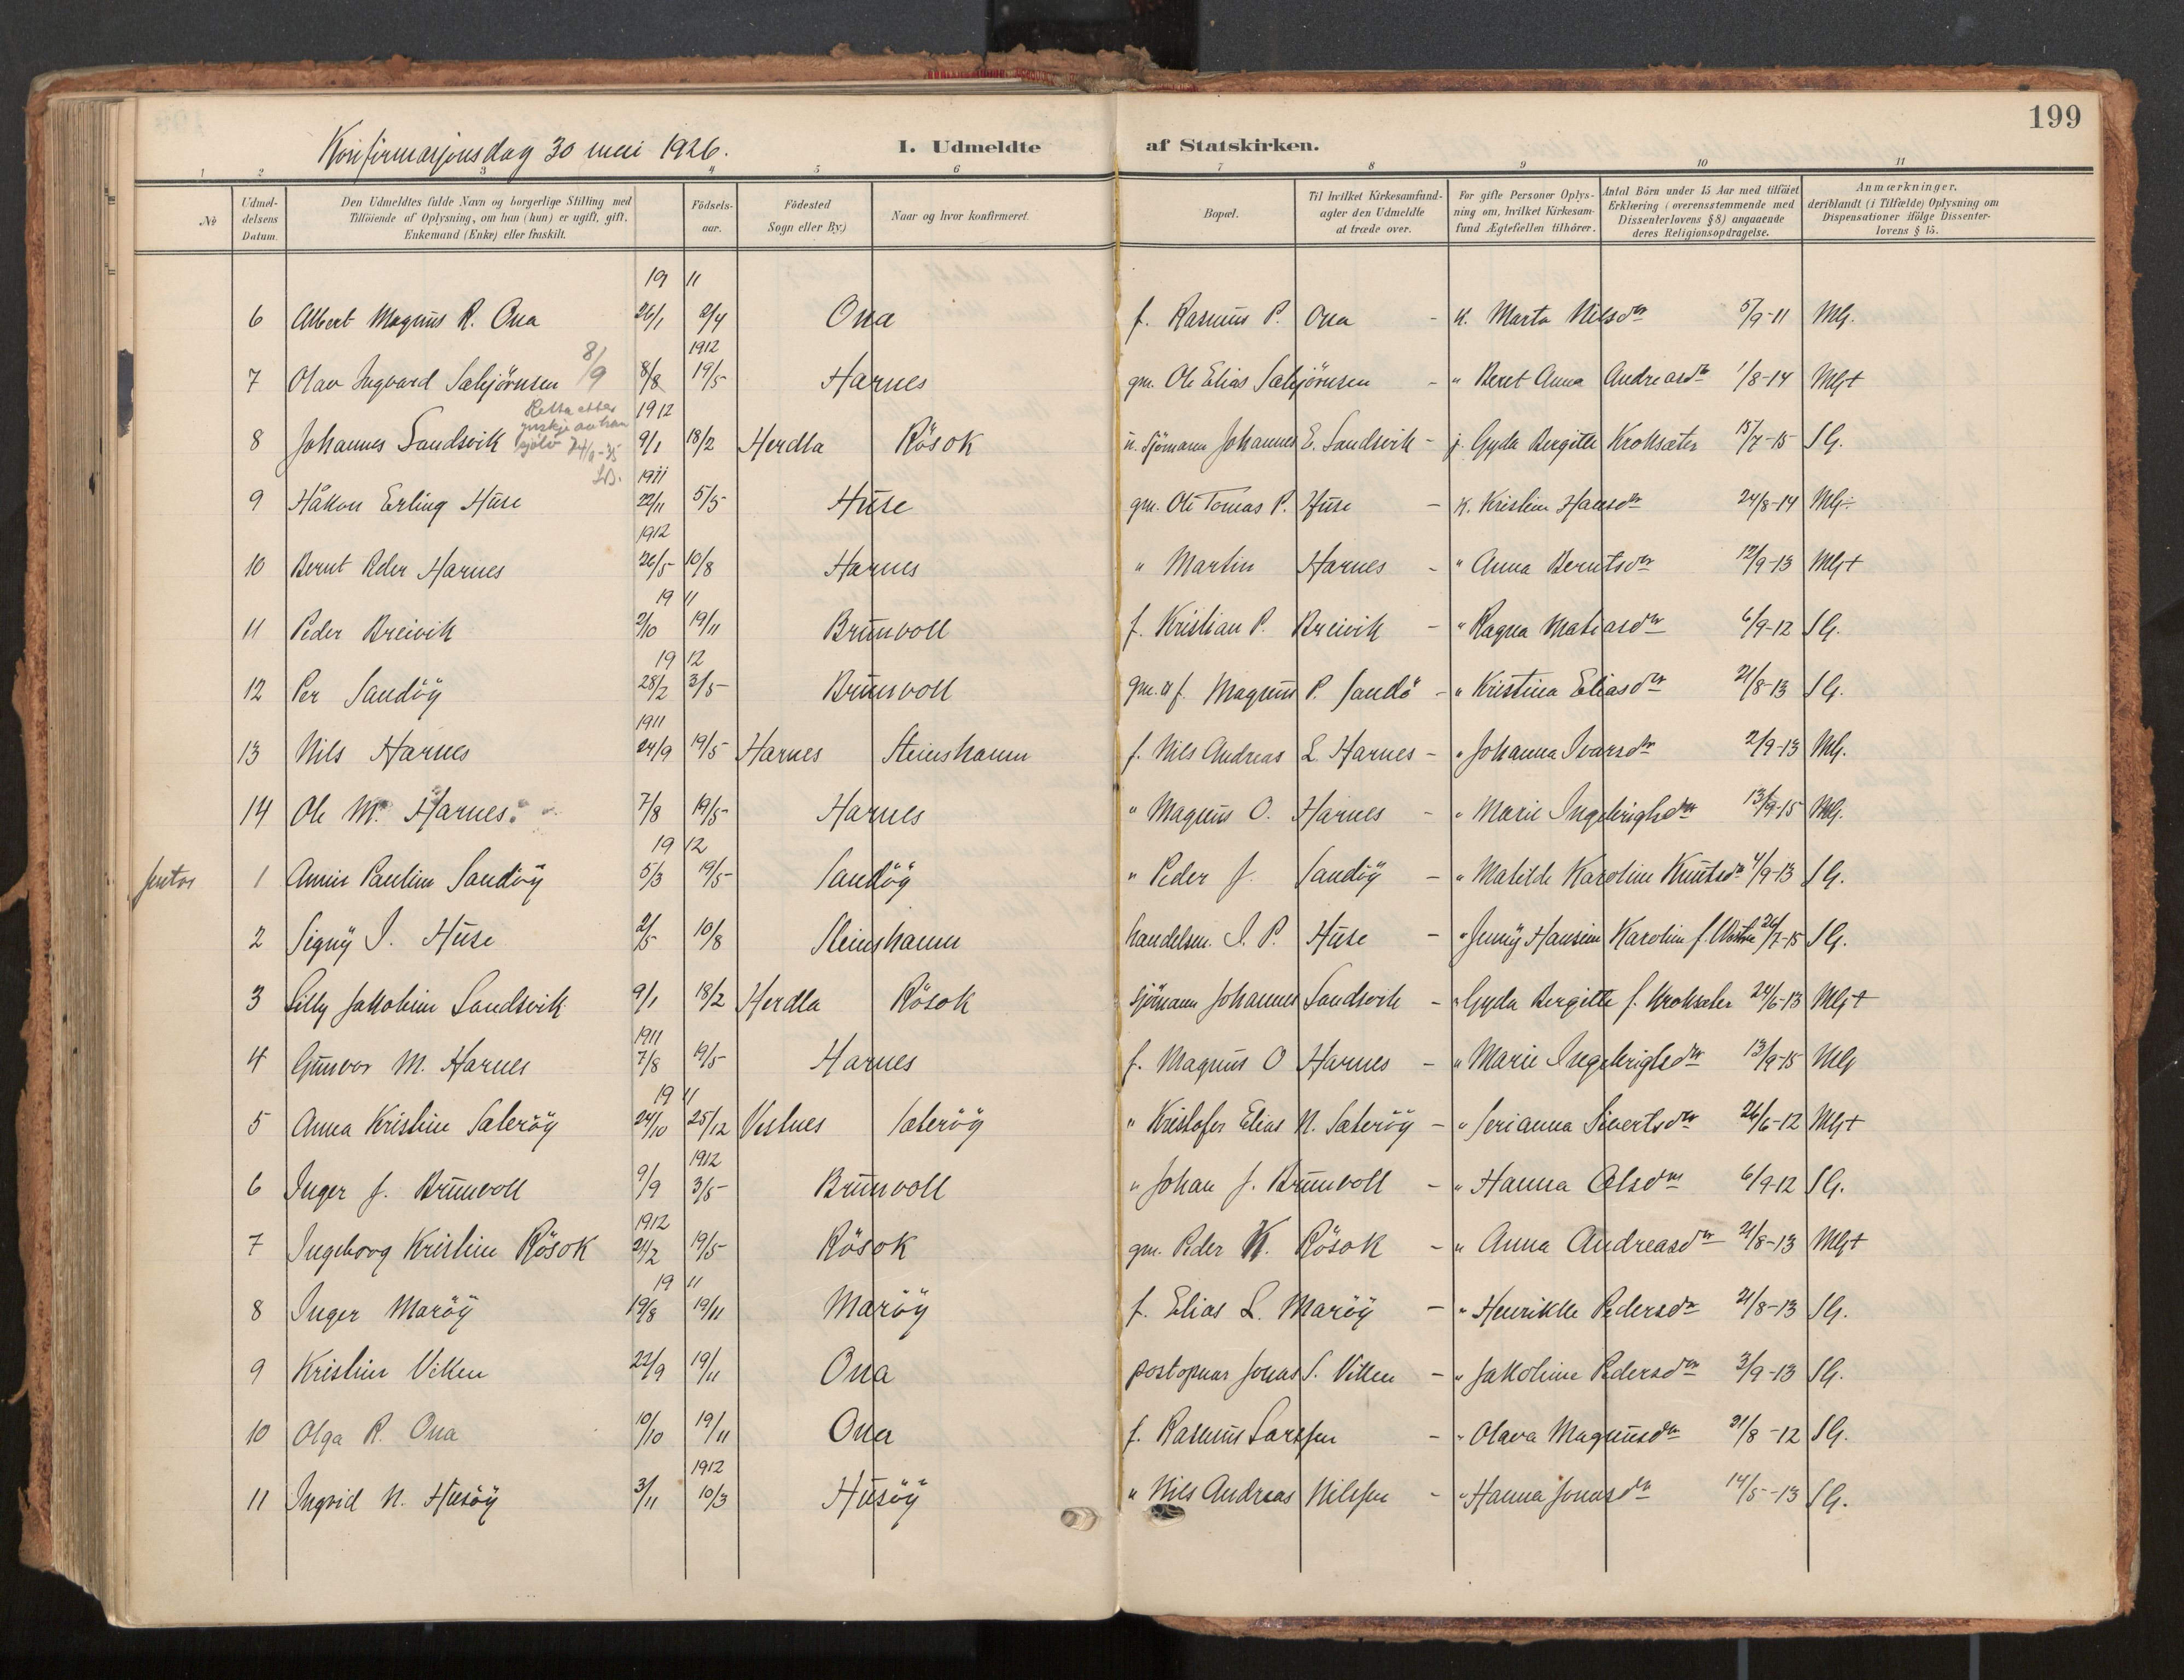 199
Konfirmasjonsdag 30 mai 1926.
I. Udmeldte af Statskirken.
1 2 3 4 5 6 7 8 9 10 11
No
Udmeldelsens Datum.
Den Udmeldtes fulde Navn og borgerlige Stilling med Tilföiende af Oplysning, om han (hun) er ugift, gift, Enkemand (Enke) eller fraskilt.
Födselsaar.
Födested Sogn eller By.)
Naar og hvor konfirmeret.
Bopæl.
Til hvilket Kirkesamfund agter den Udmeldte at træde over.
For gifte Personer Oplysning om, hvilket Kirkesamfund Ægtefællen tilhörer.
Antal Börn under 15 Aar med tilföiet Erklæring (overensstemmende med Dissenterlovens § 8) angaaende deres Religionsopdragelse.
Anmærkninger, deriblandt (i Tilfælde) Oplysning om Dispensationer ifölge Dissenterlovens § 15.
19 11
6 Albert Magnus R. Ona 26/1 2/4 Ona f. Rasmus P. Ona - k. Marta Nilsdtr 5/9-11 Mg.
1912
7 Olav Ingvard Sæbjörnsen 8/9 8/8 19/5 Harnes gm. Ole Elias Sæbjörnsen - " Beret Anna Andreasdtr 1/8-14 Mg+
Retta etter ynskje av han sjølv 24/9-35
1912
8 Johannes Sandsvik 9/1 18/2 Herdla Rösok u. Sjömann Johannes E. Sandsvik - j. Gyda Bergitte Kroksæter 15/7-15 SG.
1911
9 Håkon Erling Huse 22/11 5/5 Huse gm. Ole Tomas P. Huse - k. Kristine Hansdtr 24/8-14 Mg÷
1912
10 Bernt Peder Harnes 26/5 10/8 Harnes " Martin Harnes - " Anna Berntsdtr 12/9-13 Mg+
19 11
11 Peder Breivik 2/10 19/11 Brunvoll f. Kristian P. Breivik - " Ragna Matiasdtr 6/9-12 SG.
19 12
12 Per Sandöy 28/2 3/5 Brunvoll gm. o f. Magnus P. Sandö - " Kristina Eliasdtr 21/8-13 SG.
1911
13 Nils Harnes 24/9 19/5 Harnes Steinshamn f. Nils Andreas L. Harnes - " Johanna Ivarsdtr 2/9-13 Mg.
14 Ole M. Harnes. 7/8 19/5 Harnes " Magnus O. Harnes - " Marie Ingebrigtsdtr 13/9-15 Mg.
19 12
Jentor 1 Annie Pauline Sandöy 5/3 19/5 Sandöy " Peder J. Sandöy - " Matilde Karoline Knutsdtr 4/9-13 SG.
2 Signy I. Huse 2/5 10/8 Steinshamn handelsm. I. P. Huse - " Jenny Hansine Karoline f. 26/7-15 SG.
3 Lilly Jakobine Sandsvik 9/1 18/2 Herdla Rösok Sjömann Johannes Sandsvik - " Gyda Bergitte f. Kroksæter 24/6-13 Mg+
1911
4 Gunvor M. Harnes 7/8 19/5 Harnes f. Magnus O Harnes - " Marie Ingebrigtsdtr 13/9-15 Mg
19 11
5 Anna Kristine Sæteröy 24/10 25/12 Vestnes Sæteröy " Kristofer Elias N. Sæteröy - " Serianna Sivertsdtr 26/6-12 Mg+
1912
6 Inger J. Brunvoll 9/9 3/5 Brunvoll " Johan J. Brunvoll - " Hanna Olsdtr 6/9-12 SG.
1912
7 Ingeborg Kristine Rösok 24/2 19/5 Rösok gm. Peder K. Rösok - " Anna Andreasdtr 21/8-13 Mg+
19 11
8 Inger Maröy 19/8 19/11 Maröy f. Elias L. Maröy - " Henrikke Pedersdtr 21/8-13 SG.
9 Kristine Viken 22/9 19/11 Ona postopnar Jonas S. Viken - " Jakobine Pedersdtr 3/9-13 SG.
10 Olga R. Ona 10/10 19/11 Ona f. Rasmus Larssen - " Olava Magnusdtr 31/8-12 SG.
1912
11 Ingrid N. Husöy 3/11 10/3 Husöy " Nils Andreas Nilssen - " Hanna Jonasdtr 14/5-13 SG.